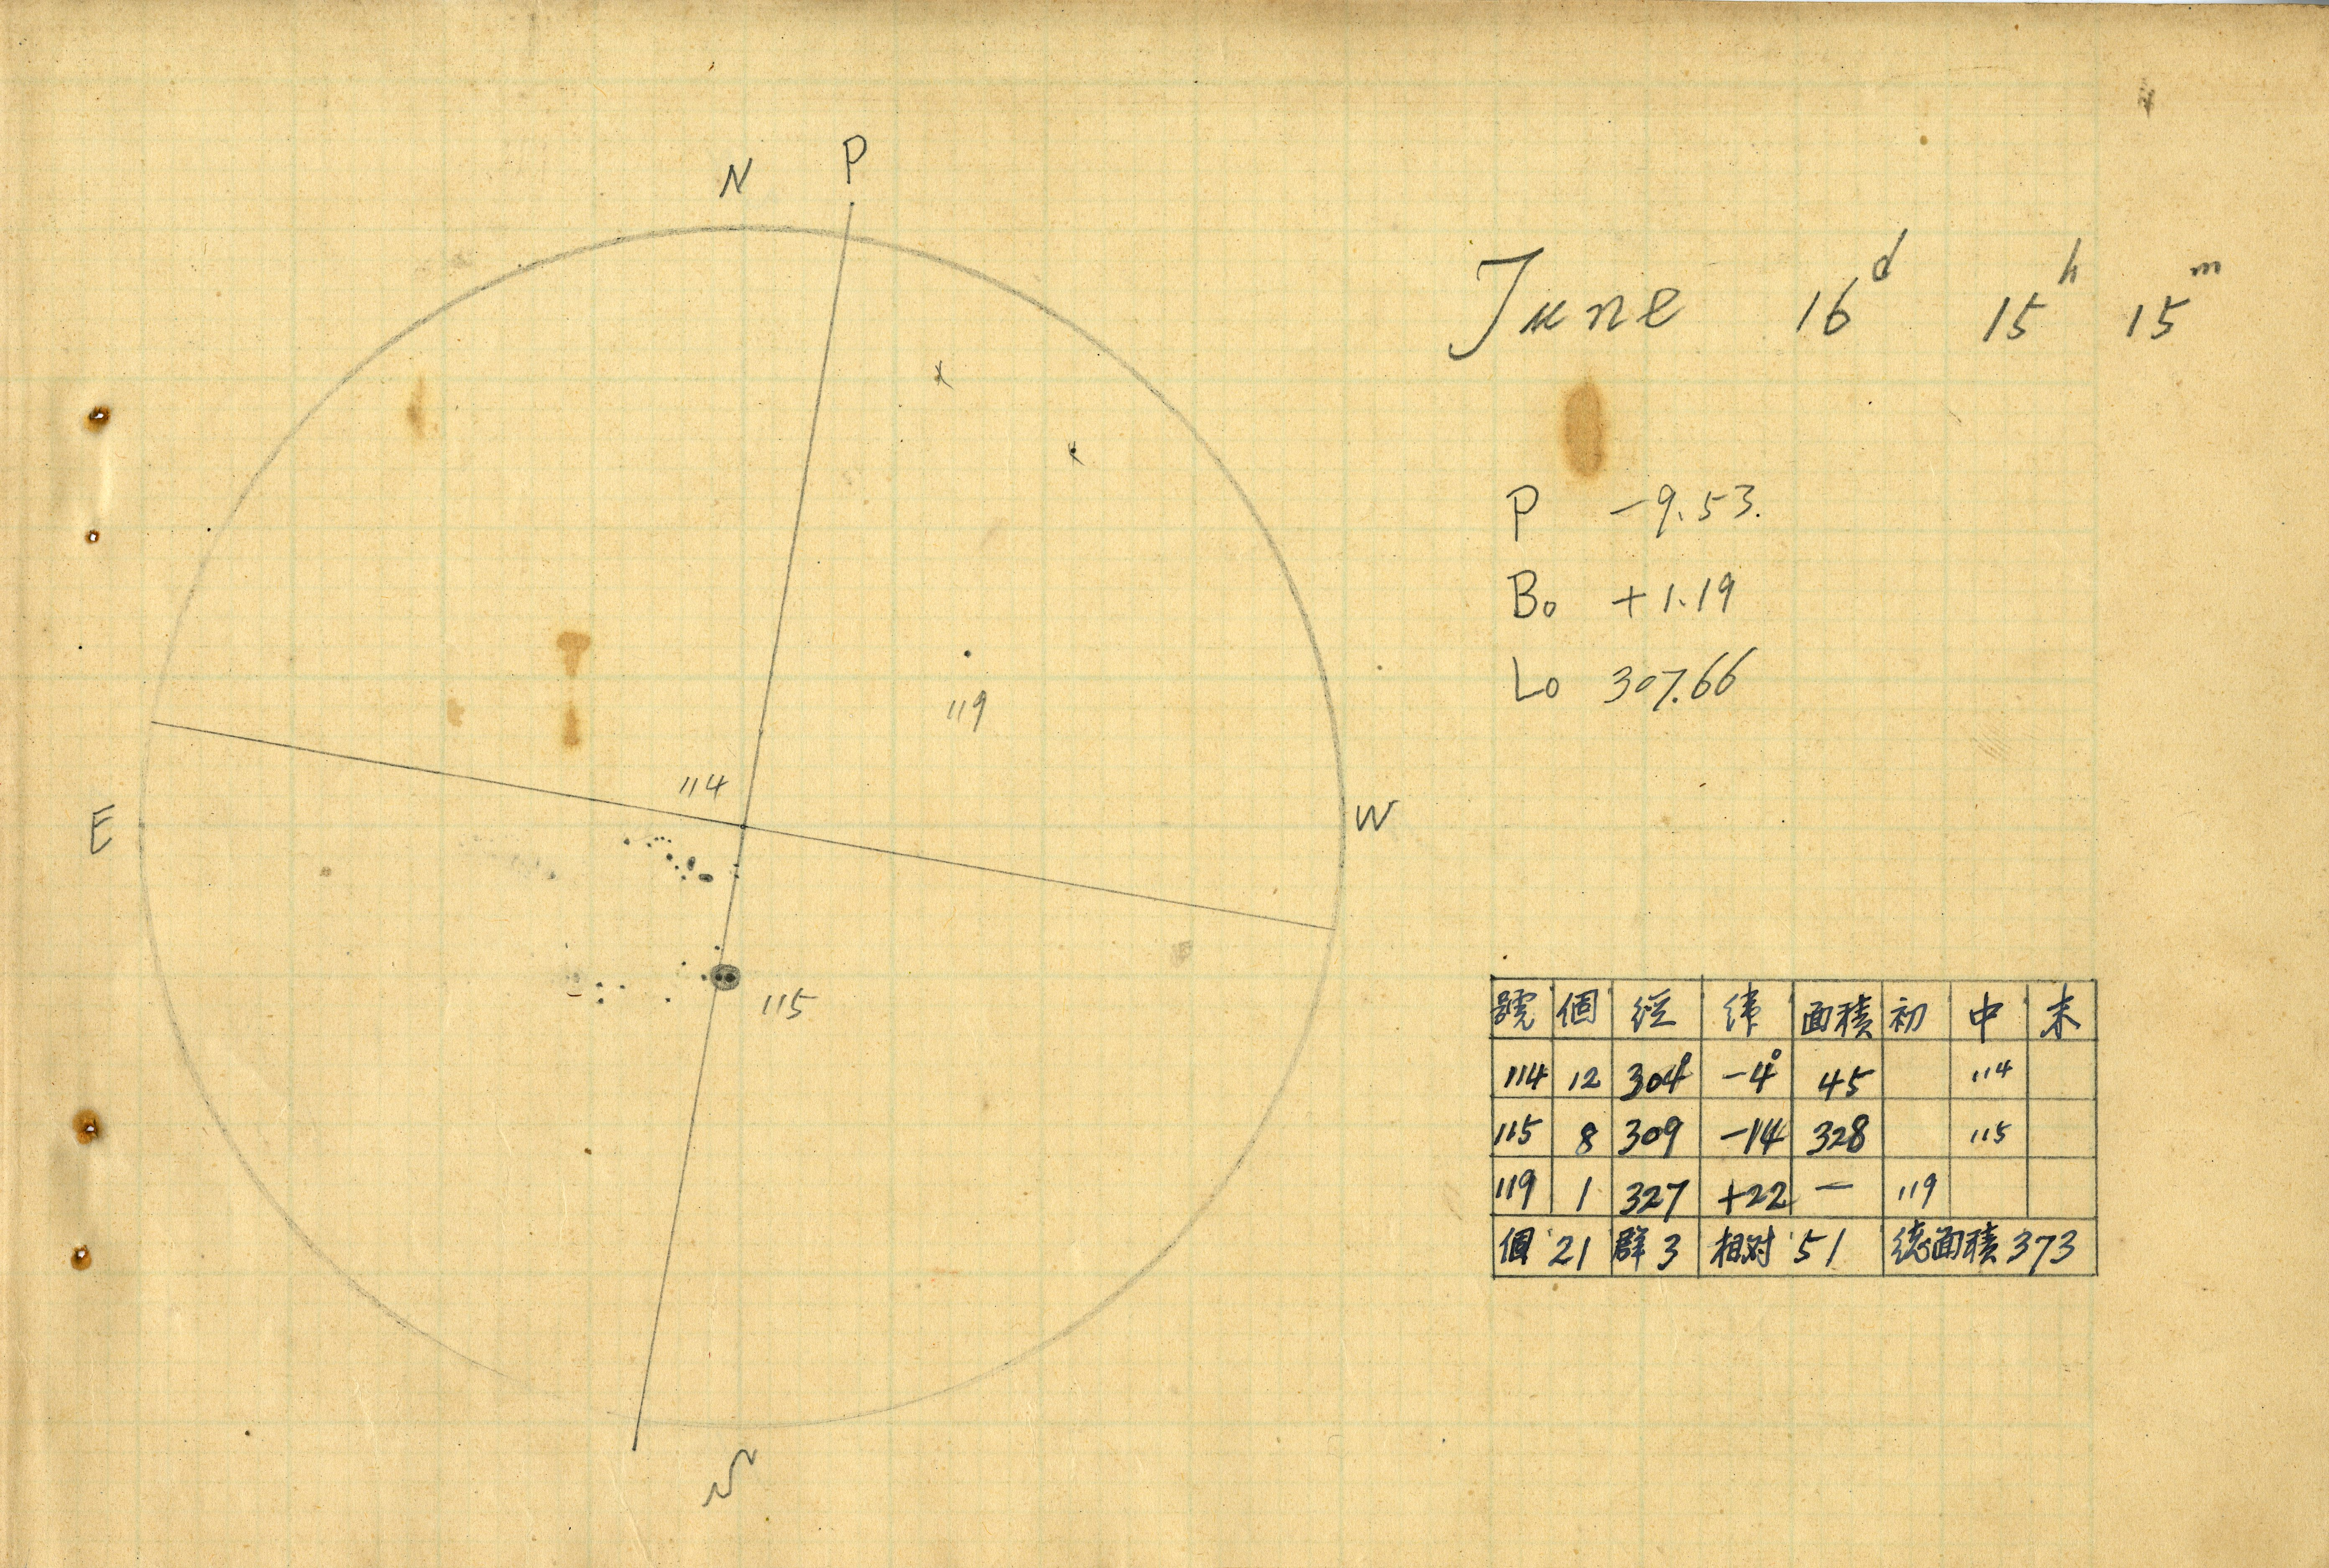 N P
June 16d 15h 15m
P -9.53.
B0 +1.19
L0 307.66
119
114
E W
115
號 個 経 緯 面積 初 中 末
114 12 304° -4° 45 114
115 8 309 -14 328 115
119 1 327 +22 — 119
個 21 群 3 相対 51 総面積 373
S